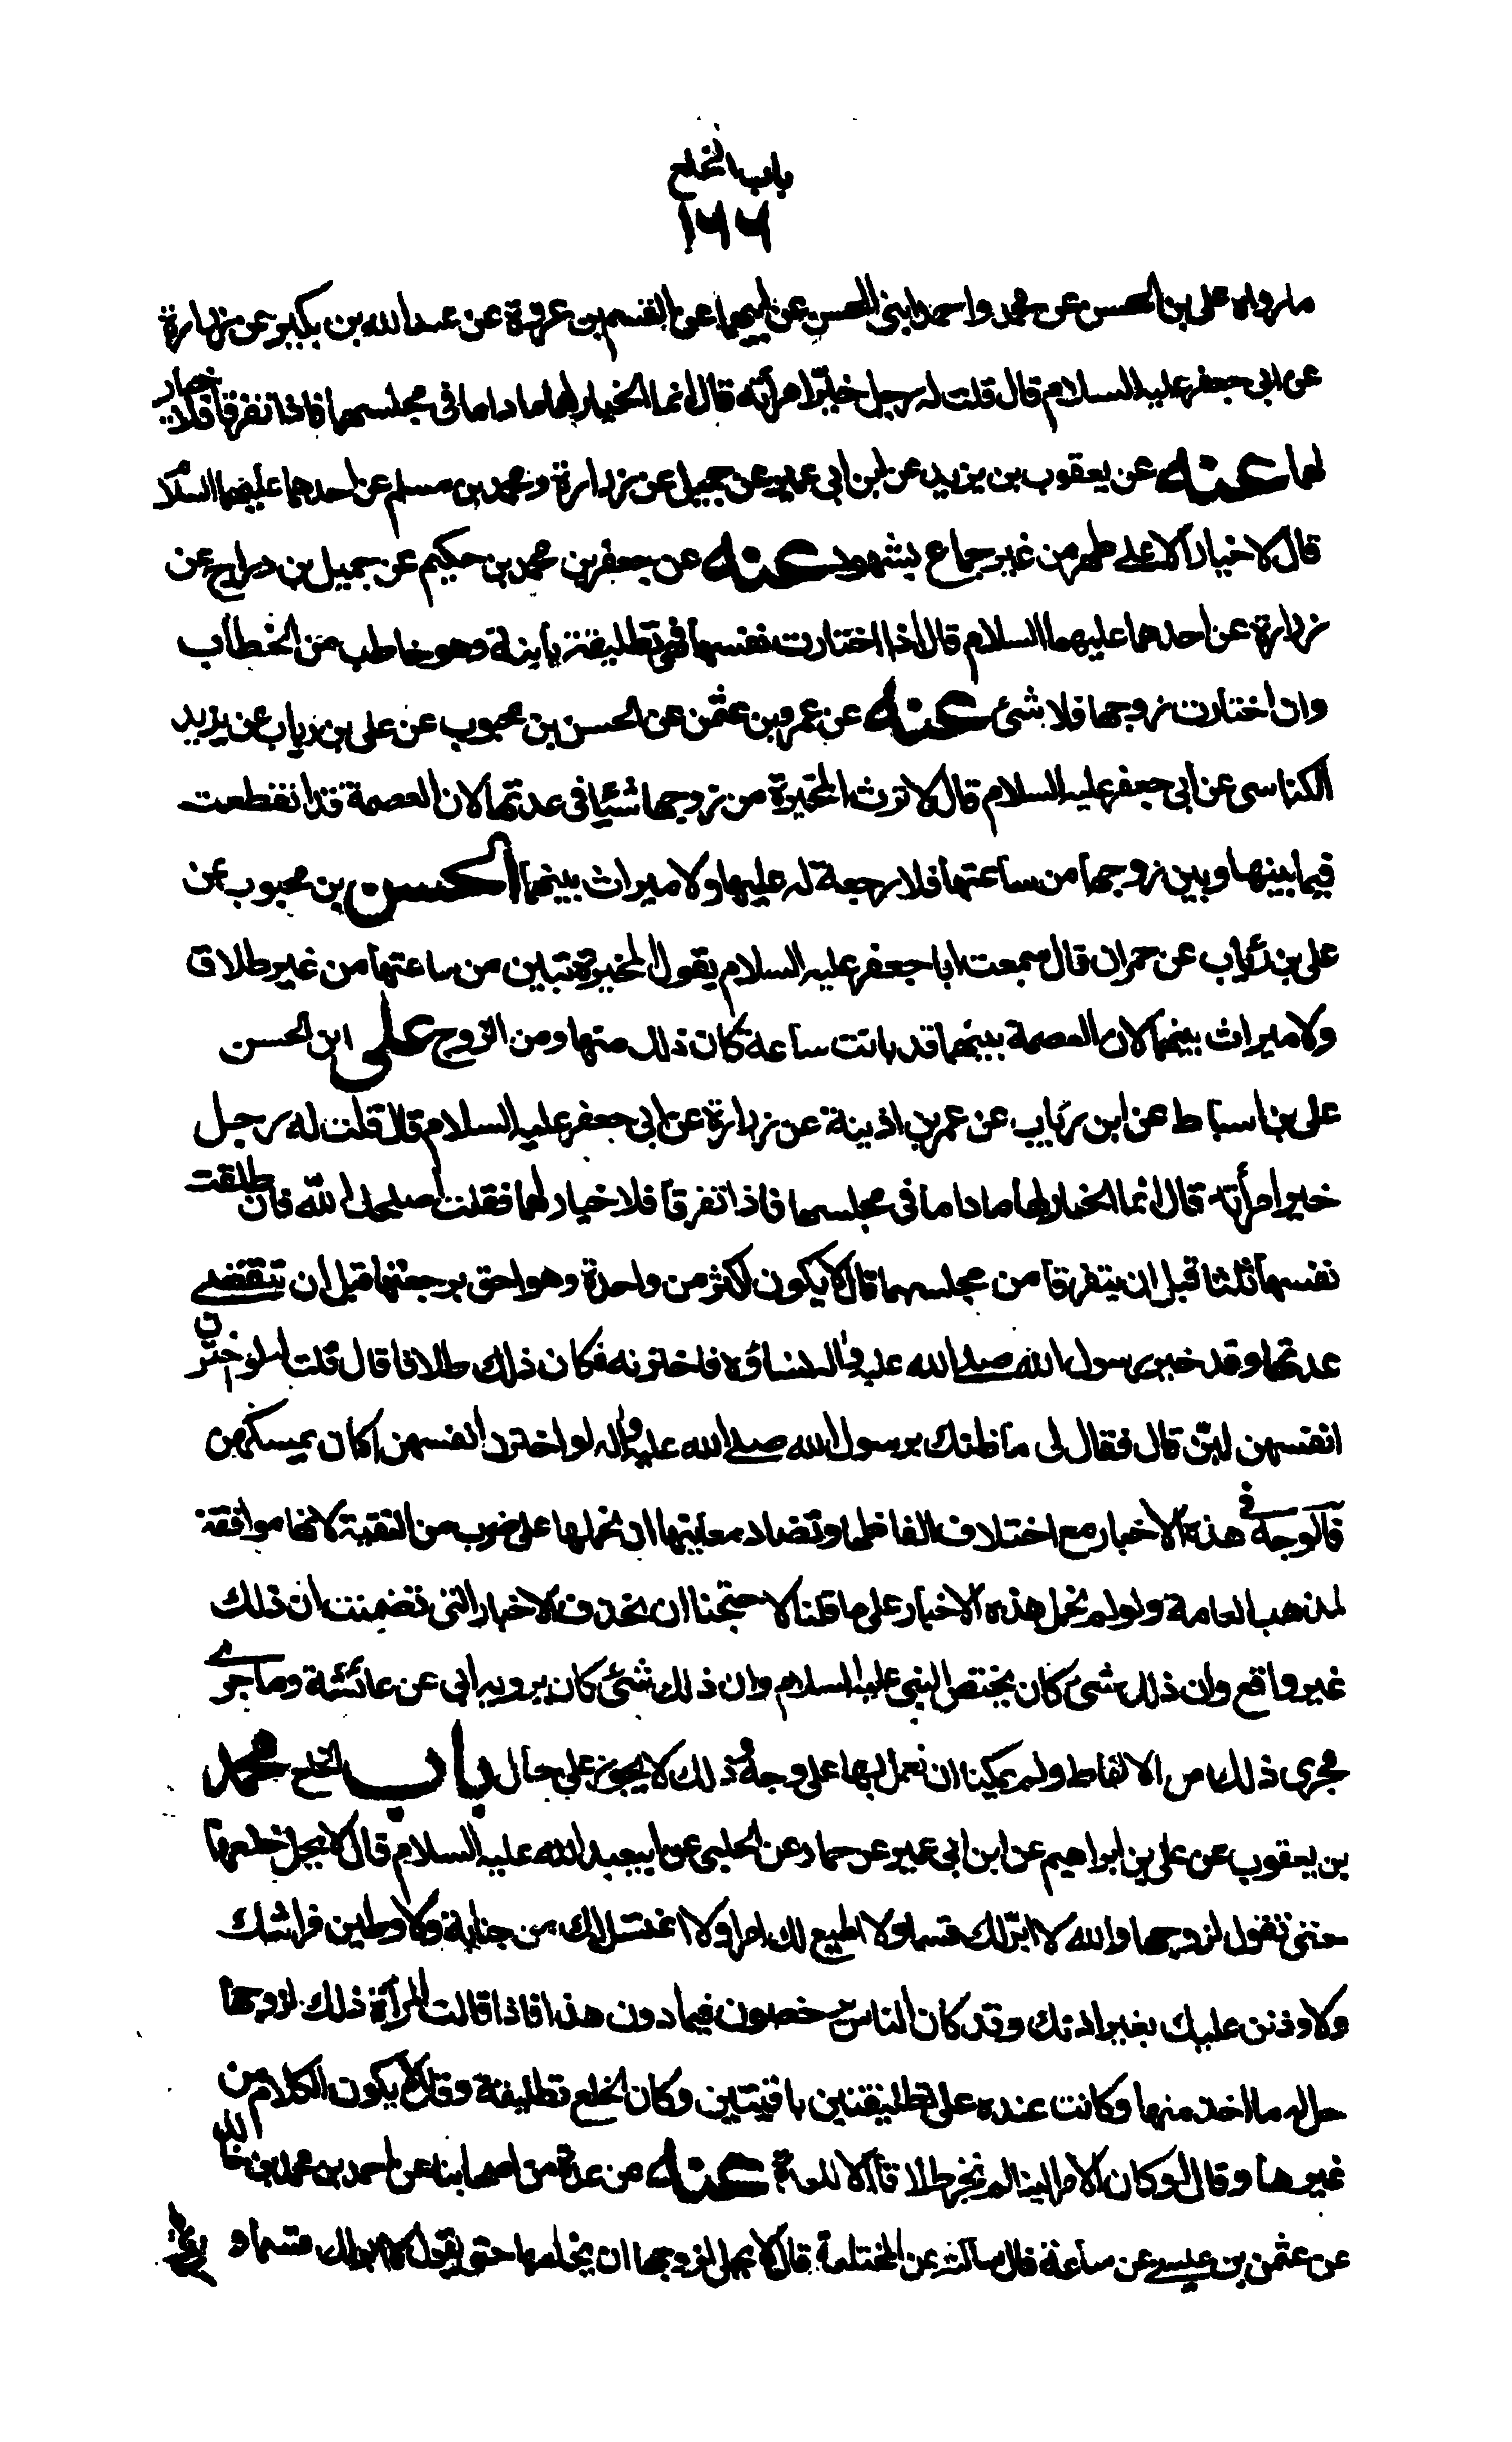 باب الخلع
١٦٦
ما رواه على بن الحسن عن محمد واحمد ابنى الحسن عن ابيهما عن القسم بن عروة عن عبدالله بن بكير عن زرارة
عن ابى جعفر عليه السلام قال قلت له رجل خيّر امرأته قال انما الخيار لهما ما داما فى مجلسهما فاذا تفرقا فلا خيار
لهما عنه عن يعقوب بن يزيد عن ابن ابى عمير عن جميل عن زرارة ومحمد بن مسلم عن احدهما عليهما السلام
قال لا خيار الا على طهر من غير جماع بشهود عنه عن جعفر بن محمد بن حكيم عن جميل بن دراج عن
زرارة عن احدهما عليهما السلام قال اذا اختارت نفسها فهى تطليقة باينة وهو خاطب من الخطاب
وان اختارت زوجها فلا شئ عنه عن عمرو بن عثمن عن الحسن بن محبوب عن على بن رياب عن يزيد
الكناسى عن ابى جعفر عليه السلام قال لا ترث المخيرة من زوجها شيئا فى عدتها لان العصمة قد انقطعت
فيما بينها وبين زوجها من ساعتها فلا رجعة له عليها ولا ميراث بينهما الحسن بن محبوب عن
على بن رئاب عن حمران قال سمعت ابا جعفر عليه السلام يقول المخيرة تبين من ساعتها من غير طلاق
ولا ميراث بينهما لان العصمة بينهما قد بانت ساعة كان ذلك منها ومن الزوج على ابن الحسن
على بن اسباط عن ابن رئاب عن عمر بن اذينة عن زرارة عن ابى جعفر عليه السلام قال قلت له رجل
خير امرأته قال انما الخيار لهما ما داما فى مجلسهما فاذا تفرقا فلا خيار لهما فقلت اصلحك الله فان طلقت
نفسها ثلثا قبل ان يتفرقا من مجلسهما قال لا يكون اكثر من واحدة وهو احق برجعتها قبل ان تنقضى
عدتها وقد خير رسول الله صلى الله عليه وآله نساؤه فاخترنه فكان ذلك طلاقا قال قلت له لو اخترن
انفسهن لبنّ قال فقال لى ما ظنك برسول الله صلى الله عليه وآله لو اخترن انفسهن اكان يمسكهن
فالوجه فى هذه الاخبار مع اختلاف الفاظها وتضاد معانيها ان نحملها على ضرب من التقية لانها موافقة
لمذهب العامة ولو لم نحمل هذه الاخبار على ما قلنا لاحتجنا ان نحذف الاخبار التى تضمنت ان ذلك
غير واقع وان ذلك شئ كان يختص النبى عليه السلام وان ذلك شئ كان يرويه ابى عن عائشة وما جرى
مجرى ذلك من الالفاظ ولم يمكينا ان نعمل بها على وجه وذلك لا يجوز على حال باب الخلع محمد
بن يعقوب عن على بن ابراهيم عن ابن ابى عمير عن حماد عن الحلبى عن ابيعبد الله عليه السلام قال لا يحل خلعها
حتى تقول لزوجها والله لا ابرّ لك قسما ولا اطيع لك امرا ولا اغتسل لك من جنابة ولاوطين فراشك
ولاوذنن عليك بغير اذنك وقد كان الناس يرخصون فيما دون هذا فاذا قالت المرأة ذلك لزوجها
حل له ما اخذ منها وكانت عنده على تطليقتين باقيتين وكان الخلع تطليقة وقال لا يكون الكلام من
غيرها وقال لو كان الامر الينا لم نجز طلاقا الا للعدة عنه من عدة من اصحابنا عن احمد بن محمد بن خالد
عن عثمن بن عيسى عن سماعة قال سألته عن المختلعة قال لا يحل لزوجها ان يخلعها حتى تقول لا ابر لك قسما و